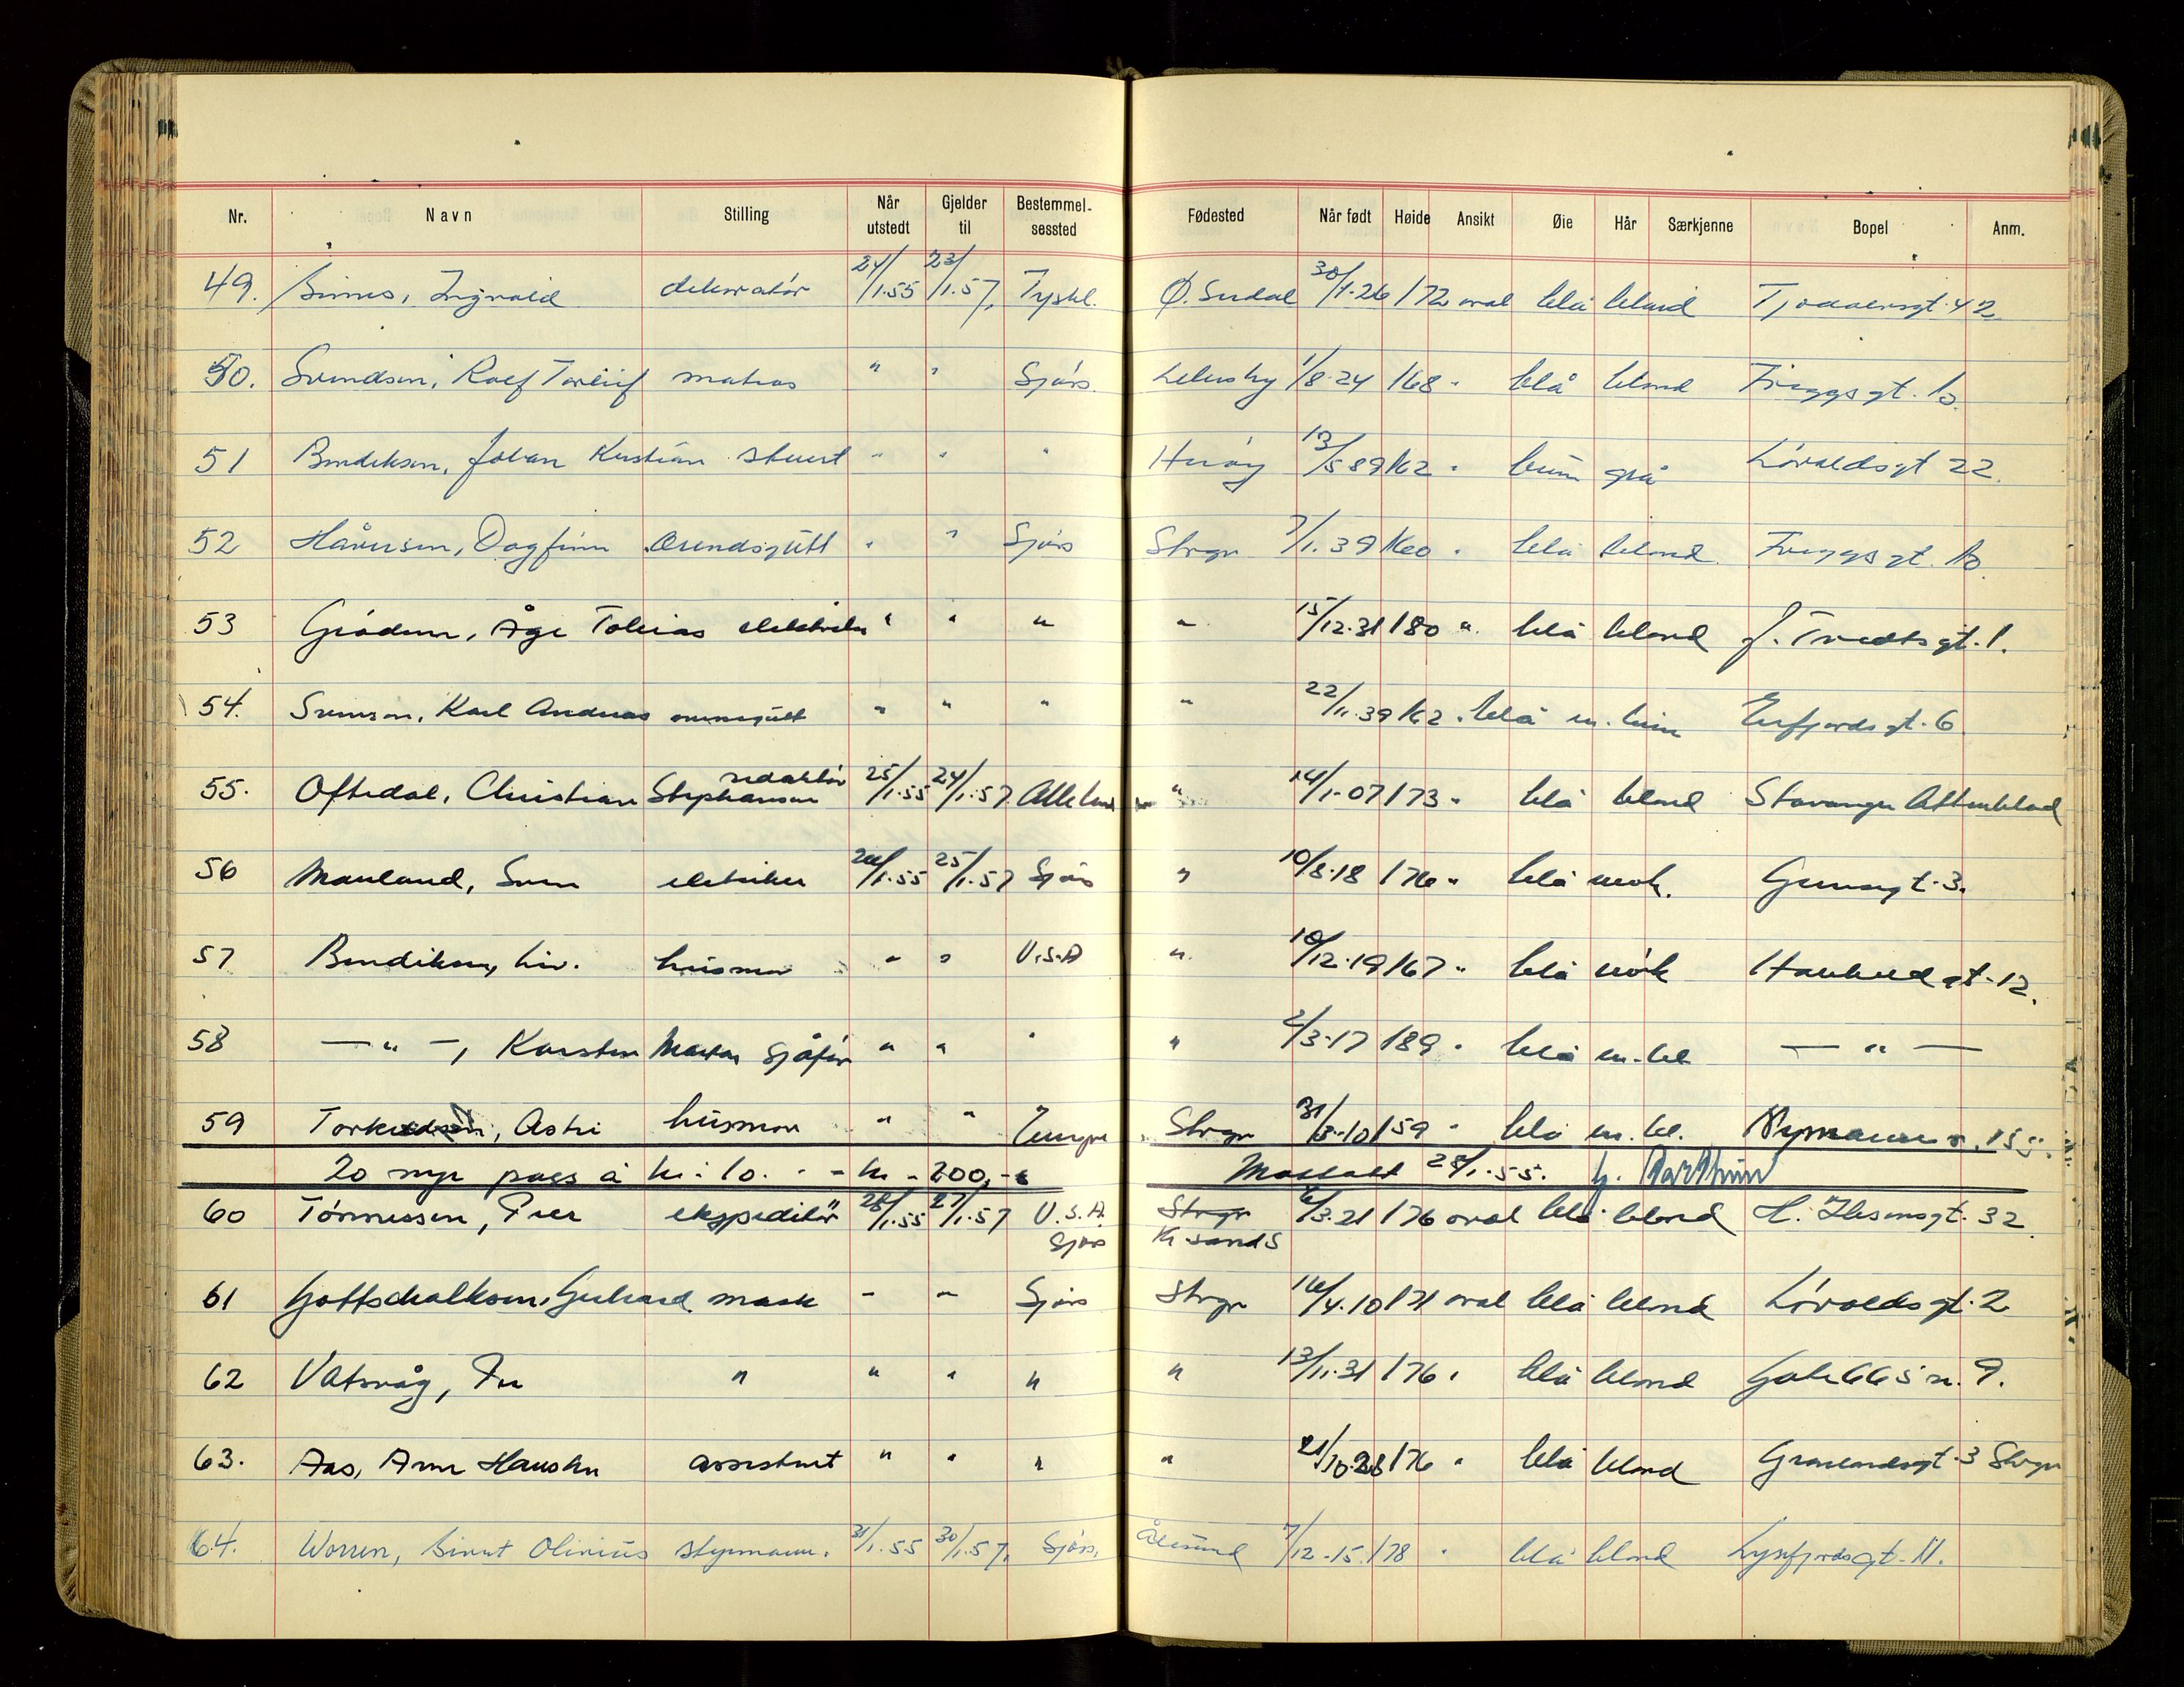 Nr. Navn Stilling Når utstedt Gjelder til Bestemmelsessted Fødested Når født Høide Ansikt Øie Hår Særkjenne Bopel Anm.
49. Sinnes, Ingvald dekoratör 24/1.55 23/1.57, Tyskl. Ø. Sirdal 30/1-26 172 oval blå blond Tjodolvsgt. 42
50. Svendsen, Rolf Torleif matros " " Sjörs. 1/8-24 168 " blå blond Friggsgt. 10.
51 Bendiksen, Johan Kristian stuert " " " Heröy 13/5 89 162 " brun grå Lövoldsgt 22.
52 Håversen, Dagfinn Ærendsgutt " " Sjörs Stvgr 7/1.39 160 " blå blond Friggsgt. 10.
53 Gröden, Åge Tobias elektriker " " " " 15/12.31 180 " blå blond J. Tvedtsgt. 1.
54. Svensen, Karl Andreas " " " " 22/11.39 162 " blå m. brun Erfjordsgt. 6
55. Oftedal, Christian Stephansen redaktör 25/1.55 24/1.57 Alle land " 14/1-07 173 " blå blond Stavanger Aftenblad
56 Mauland, Sven elektriker 26/1.55 25/1.57 Sjörs " 10/8.18 176 " blå mörk. 
57 Bendiksen, Liv. husmor " " U.S.A " 10/12.19 167 " blå mörk Haukeligt. 12.
58 — " —, Karsten Sjåför " " " " 2/3.17 189 " blå m. bl — " —
59 Torkildsen, Astri husmor " " Europa Stvgr 31/3-10 159 " blå m. bl. Nymannsv. 155.
20 nye pass á kr. 10. - - kr - 200,- Mottatt 28/1.55.
60 Tönnessen, Peer ekspeditör 28/1.55 27/1.57 U.S.A. Sjörs Stvgr Kr.sand S 6/3.21 176 oval blå blond H. Ibsensgt. 32.
61 Gottschalksen, Gerhard mask " " Sjörs Stvgr 16/4.10 171 oval blå blond Lövoldsgt. 2
62 Vatsvåg, Per " " " " " 13/11.31 176 " blå blond
63. Aas, Arne Hauskn assistent " " " " 21/10.28 176 " blå blond Gravarsgt. 3 Stvgr
64. Worren, Sivert Olinius styrmann. 31/1.55 30/1.57, Sjörs, Ålesund 7/12-15 178 " blå blond Lysefjordsgt. 11.